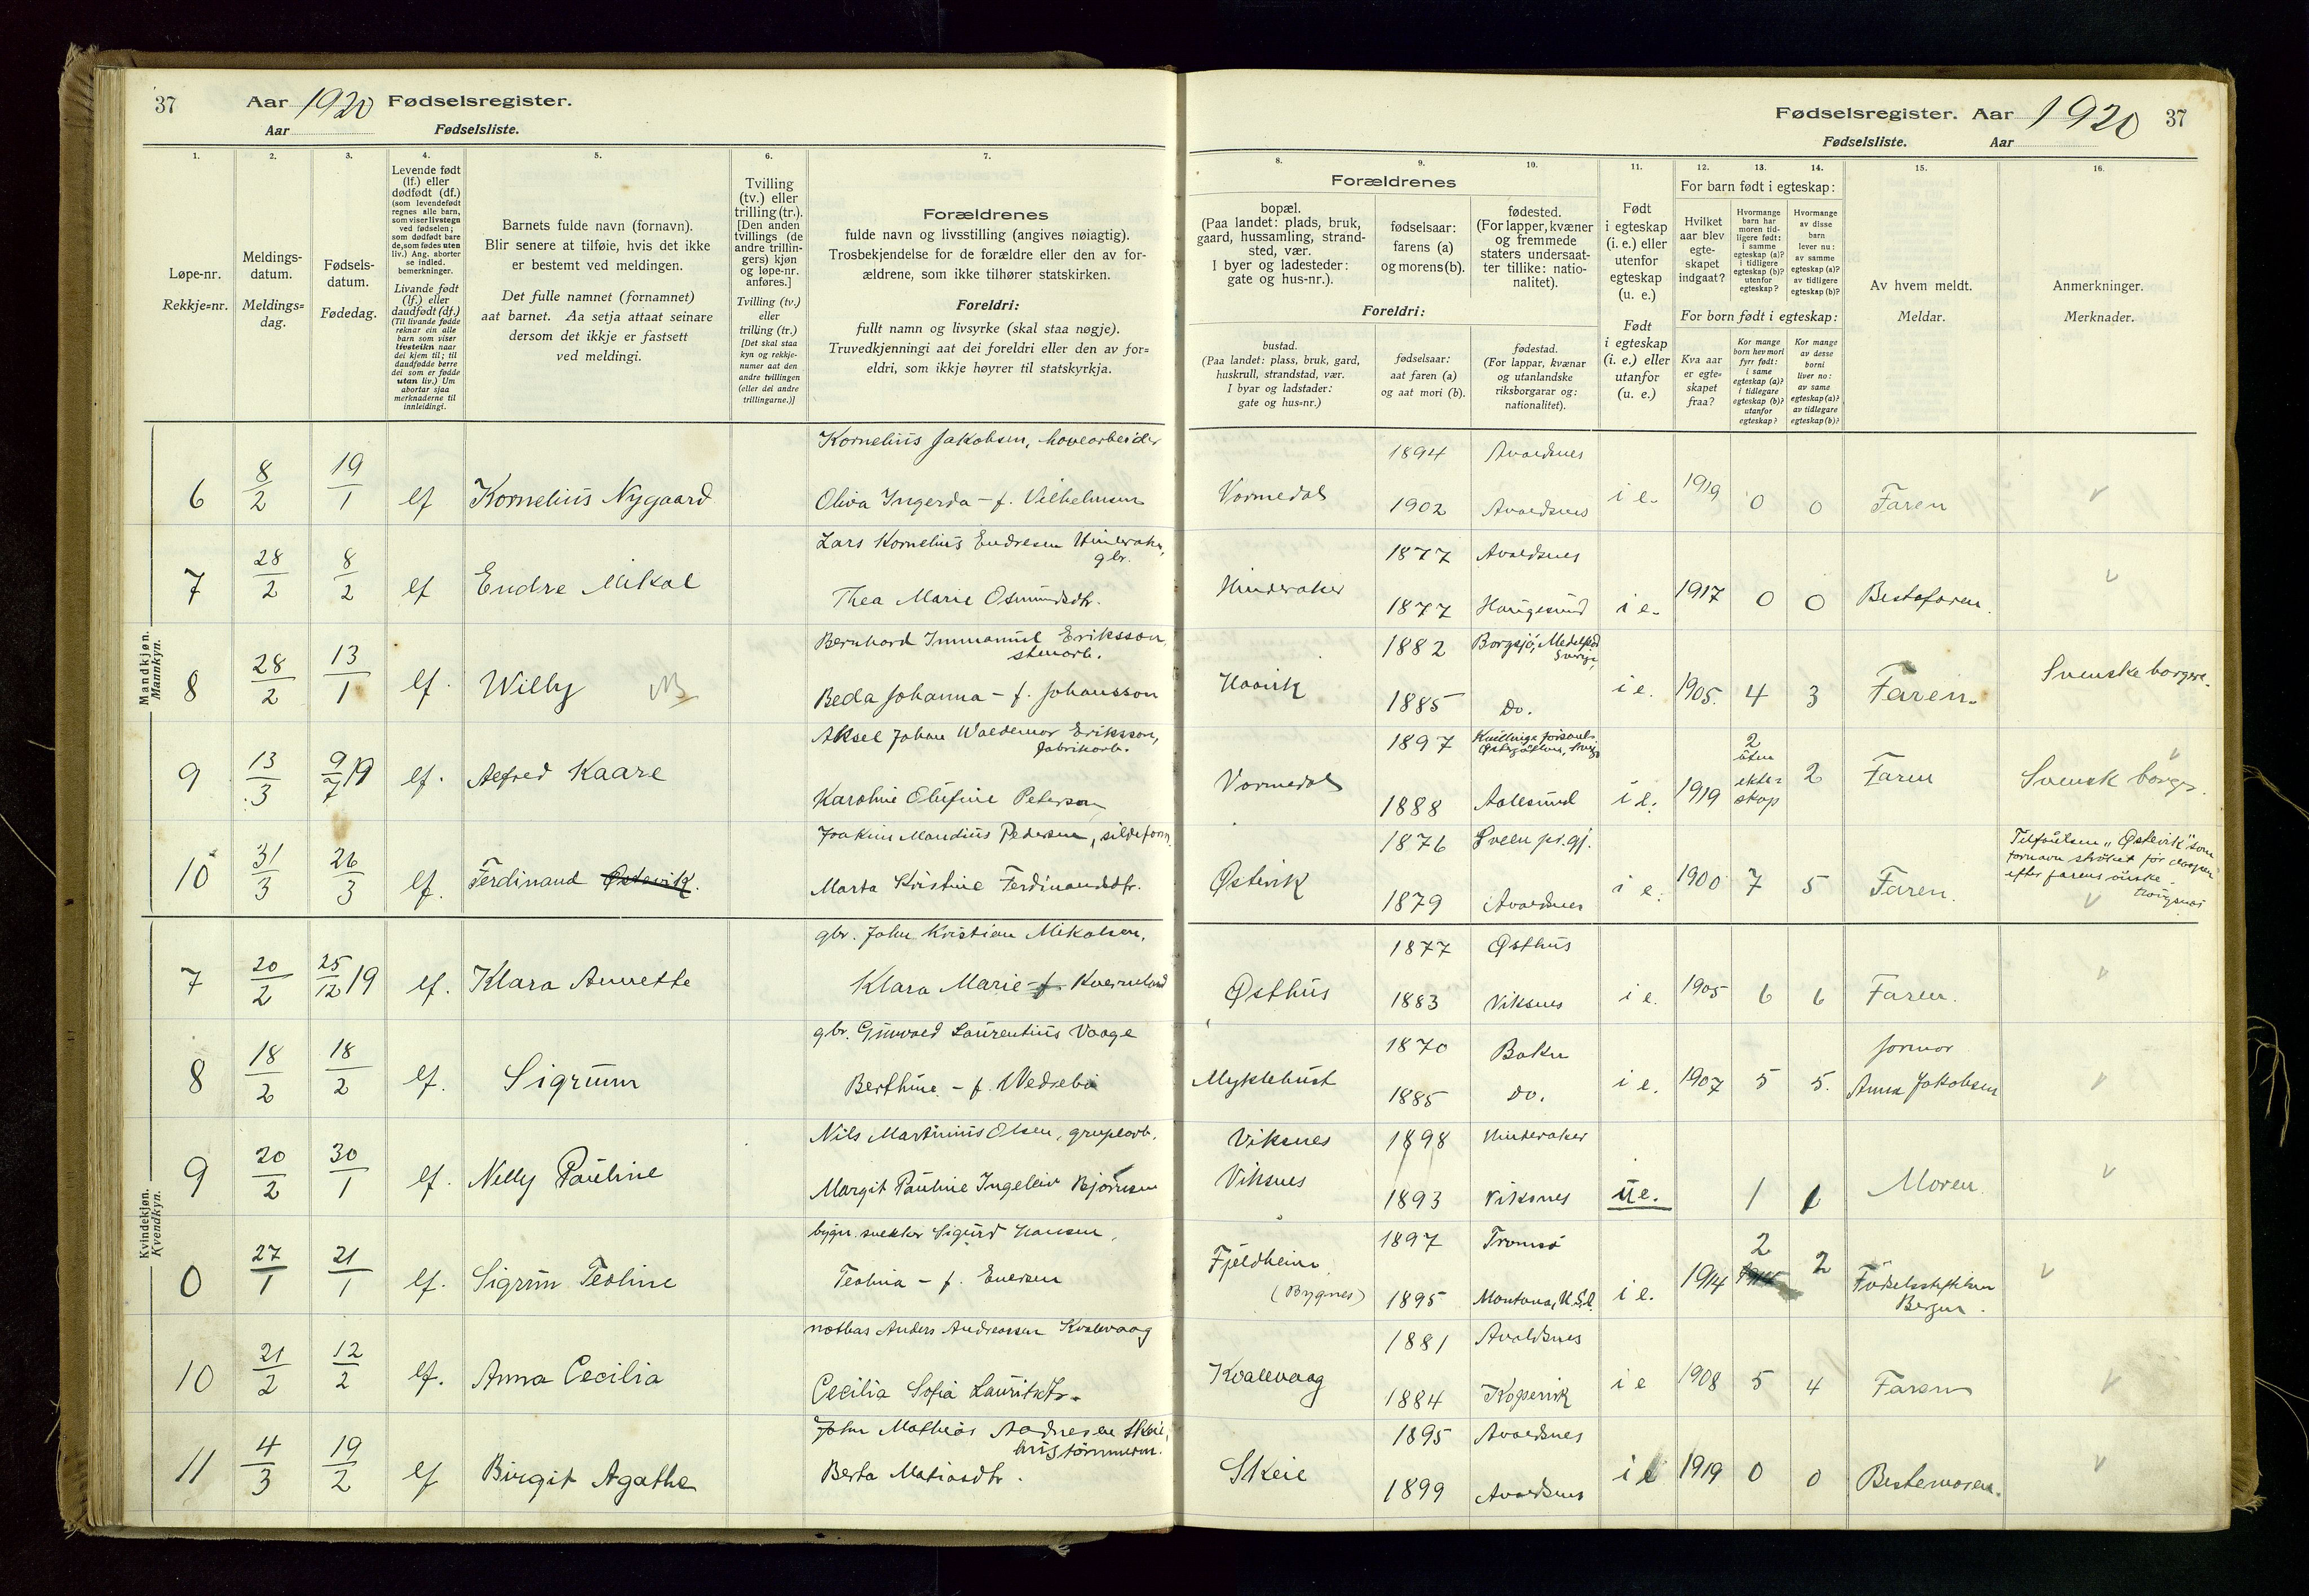 37 Aar 1920 Fødselsregister.
Aar Fødselsliste.
Fødselsregister. Aar 1920 37
Fødselsliste. Aar
1. 2. 3. 4. 5. 6. 7.
Løpe-nr.
Rekkje=nr.
Meldings-
datum.
Meldings=
dag.
Fødsels-
datum.
Fødedag.
Levende født
(lf.) eller
dødfødt (df.)
(som levendefødt
regnes alle barn,
som viser livstegn
ved fødselen;
som dødfødt bare
de, som fødes uten
liv.) Ang. aborter
se indled.
bemerkninger.
Livande født
(lf.) eller
daudfødt (df.)
(Til livande fødde
reknar ein alle
barn som viser
livsteikn naar
dei kjem til; til
daudfødde berre
dei som er fødde
utan liv.) Um
abortar sjaa
merknaderne til
innleidingi.
Barnets fulde navn (fornavn).
Blir senere at tilføie, hvis det ikke
er bestemt ved meldingen.
Det fulle namnet (fornamnet)
aat barnet. Aa setja attaat seinare
dersom det ikkje er fastsett
ved meldingi.
Tvilling
(tv.) eller
trilling (tr.).
[Den anden
tvillings (de
andre trillin-
gers) kjøn
og løpe-nr.
anføres.]
Tvilling (tv.)
eller
trilling (tr.)
[Det skal staa
kyn og rekkje-
numer aat den
andre tvillingen
(eller dei andre
trillingarne.)]
Forældrenes
fulde navn og livsstilling (angives nøiagtig).
Trosbekjendelse for de forældre eller den av for-
ældrene, som ikke tilhører statskirken.
Foreldri:
fullt namn og livsyrke (skal staa nøgje).
Truvedkjenningi aat dei foreldri eller den av for=
eldri, som ikkje høyrer til statskyrkja.
8. 9. 10. 11. 12. 13. 14. 15. 16.
Forældrenes
bopæl.
(Paa landet: plads, bruk,
gaard, hussamling, strand-
sted, vær.
I byer og ladesteder:
gate og hus-nr.).
fødselsaar:
farens (a)
og morens (b).
fødested.
(For lapper, kvæner
og fremmede
staters undersaat-
ter tillike: natio-
nalitet).
Foreldri:
bustad.
(Paa landet: plass, bruk, gard,
huskrull, strandstad, vær.
I byar og ladstader:
gate og hus=nr.)
fødselsaar:
aat faren (a)
og aat mori (b).
fødestad.
(For lappar, kvænar
og utanlandske
riksborgarar og:
nationalitet).
Født
i egteskap
(i. e.) eller
utenfor
egteskap
(u. e.)
Født
i egteskap
(i. e.) eller
utanfor
(u. e.)
For barn født i egteskap:
Hvilket
aar blev
egte-
skapet
indgaat?
Hvormange
barn har
moren tid-
ligere født:
i samme
egteskap (a)?
i tidligere
egteskap (b)?
utenfor
egteskap?
Hvormange
av disse
barn
lever nu:
av samme
egteskap (a)?
av tidligere
egteskap (b)?
For born født i egteskap:
Kva aar
er egte=
skapet
fraa?
Kor mange
born hev mori
fyrr født:
i same
egteskap (a)?
i tidlegare
egteskap (b)?
utanfor
egteskap?
Kor mange
av desse
borni
liver no:
av same
egteskap (a)?
av tidlegare
egteskap (b)?
Av hvem meldt.
Meldar.
Anmerkninger.
Merknader.
Mandkjøn.
Mannkyn.
Kornelius Jakobsen, havearbeider 1894 Avaldsnes
6 8/2 19/1 lf Kornelius Nygaard Oliva Ingerda – f. Vilhelmsen Vormedal 1902 Avaldsnes i e. 1919 0 0 Faren
Lars Kornelius Endresen Hinderaker, 1877 Avaldsnes
gbr.
7 28/2 8/2 lf Endre Mikal Thea Marie Osmundsdtr. Hinderaker 1877 Haugesund i e. 1917 0 0 Bestefaren.
Bernhard Immanuel Eriksson, 1882 Borgsjö, Medelpad
stenarb. Sverige,
8 28/2 13/1 lf. Willy Beda Johanna – f. Johansson Haavik 1885 Do. i e. 1905. 4 3 Faren. Svenske borgere.
Aksel Johan Waldemar Eriksson, 1897
fabrikarb.
9 13/3 9/7 19 lf. Alfred Kaare Karoline Olufine Peterson Vormedal 1888 Aalesund i e. 1919 2 uten ekteskap 2 Faren Svensk borger.
Joakim Mandius Pedersen, sildeform. 1876 Sveen pr.gj.
10 31/3 26/3 lf. Ferdinand Østevik. Marta Kristine Ferdinandsdtr. Østevik 1879 Avaldsnes i e. 1900 7 5 Faren.
Tilføielsen "Østevik" som
fornavn strøket før daapen
efter farens ønske.
Kvindekjøn.
Kvendkyn.
gbr. John Kristian Mikalsen, 1877 Østhus
7 20/2 25/12 19 lf. Klara Annette Klara Marie – f. Kverneland Østhus 1883 Viksnes i e. 1905 6 6 Faren.
gbr. Gunvald Laurentius Vaage 1870 Bokn
8 18/2 18/2 lf. Sigrunn Berthine – f. Wedsebø Myklebust 1885 Do. i e. 1907 5 5. formor
Anna Jakobsen
Nils Martinius Olsen, grubearb. Viksnes 1898 Hinderaker
9 20/2 30/1 lf. Nelly Pauline Margit Pauline Ingeleiv Bjørnsen Viksnes 1893 Viksnes u e. 1 1 Moren.
bygn. snekker Sigurd Hansen, 1897 Tromsø
0 27/1 21/1 lf. Sigrun Teoline Teolina – f. Enersen Fjeldheim
(Bygnes) 1895 Montana, U.S.A. i e. 1914 2 2 Fødselsstiftelsen
Bergen.
notbas Anders Andreassen Kvalevaag 1881 Avaldsnes
10 21/2 12/2 lf. Anna Cecilia Cecilia Sofia Lauritsdtr. Kvalevaag 1884 Kopervik i e 1908 5 4 Faren
John Mathias Aadnesen Skeie, 1895 Avaldsnes
hustømmerm.
11 4/3 19/2 lf Birgit Agathe Berta Matiasdtr. Skeie 1899 Avaldsnes i e 1919 0 0 Bestemoren.